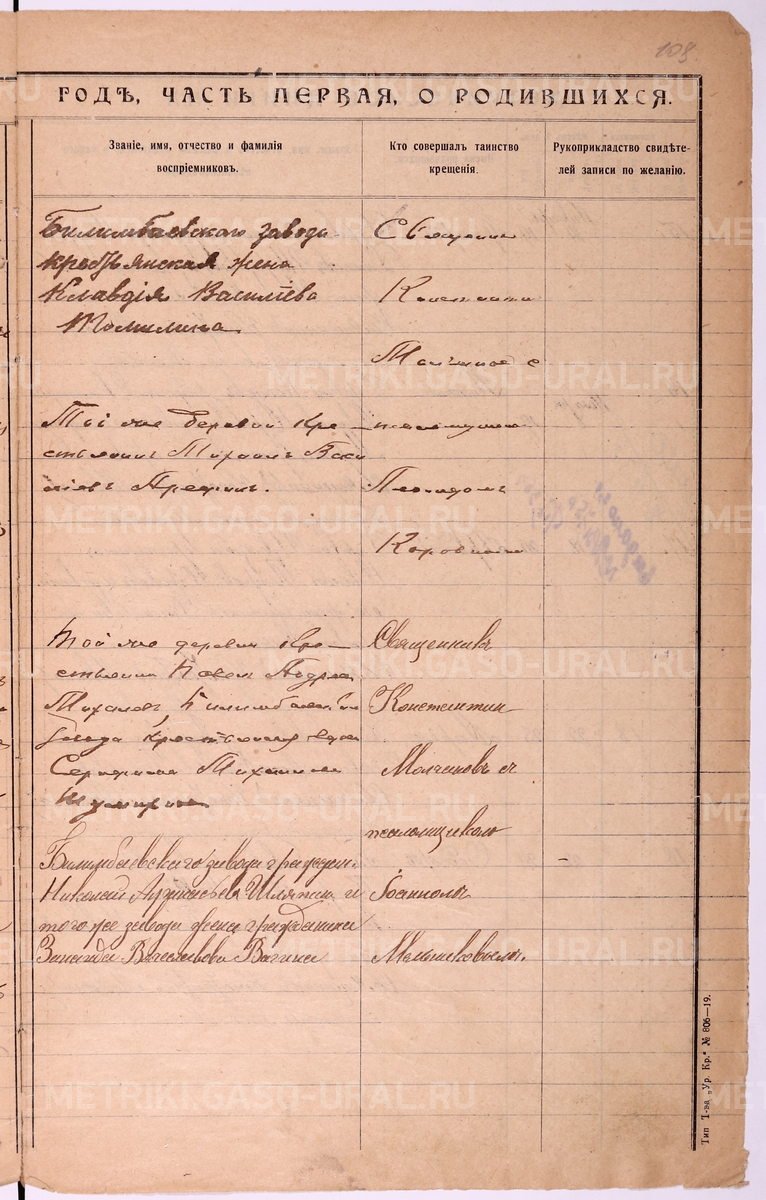 109
ГОДѢ, ЧАСТЬ ПЕРВАЯ, О РОДИВШИХСЯ.
Званіе, имя, отчество и фамилія
воспріемниковъ.
Кто совершалъ таинство
крещенія.
Рукоприкладство свидѣте-
лей записи по желанію.
Билимбаевскаго завода
крестьянская жена
Клавдія Василіева
Томилина
Священник
Константин
Молчанов с
псаломщиком
Леонидом
Коровиным
Той же деревни кре-
стьянинъ Михаилъ Васи
ліевъ
Той же деревни кре-
стьянин Павел Андреев
Билимбаевскаго
завода крестьянская
Михаилова
Священникъ
Константин
Молчановъ съ
псаломщикомъ
Іоанномъ
Мельниковымъ.
Билимбаевскаго завода граждан.
Николай Шляпин и
того же завода жена гражданина
Зинаида Вячеславова Вагина
Тип Т-ва „Ур. Кр.“ № 806—19.
METRIKI.GASO-URAL.RU